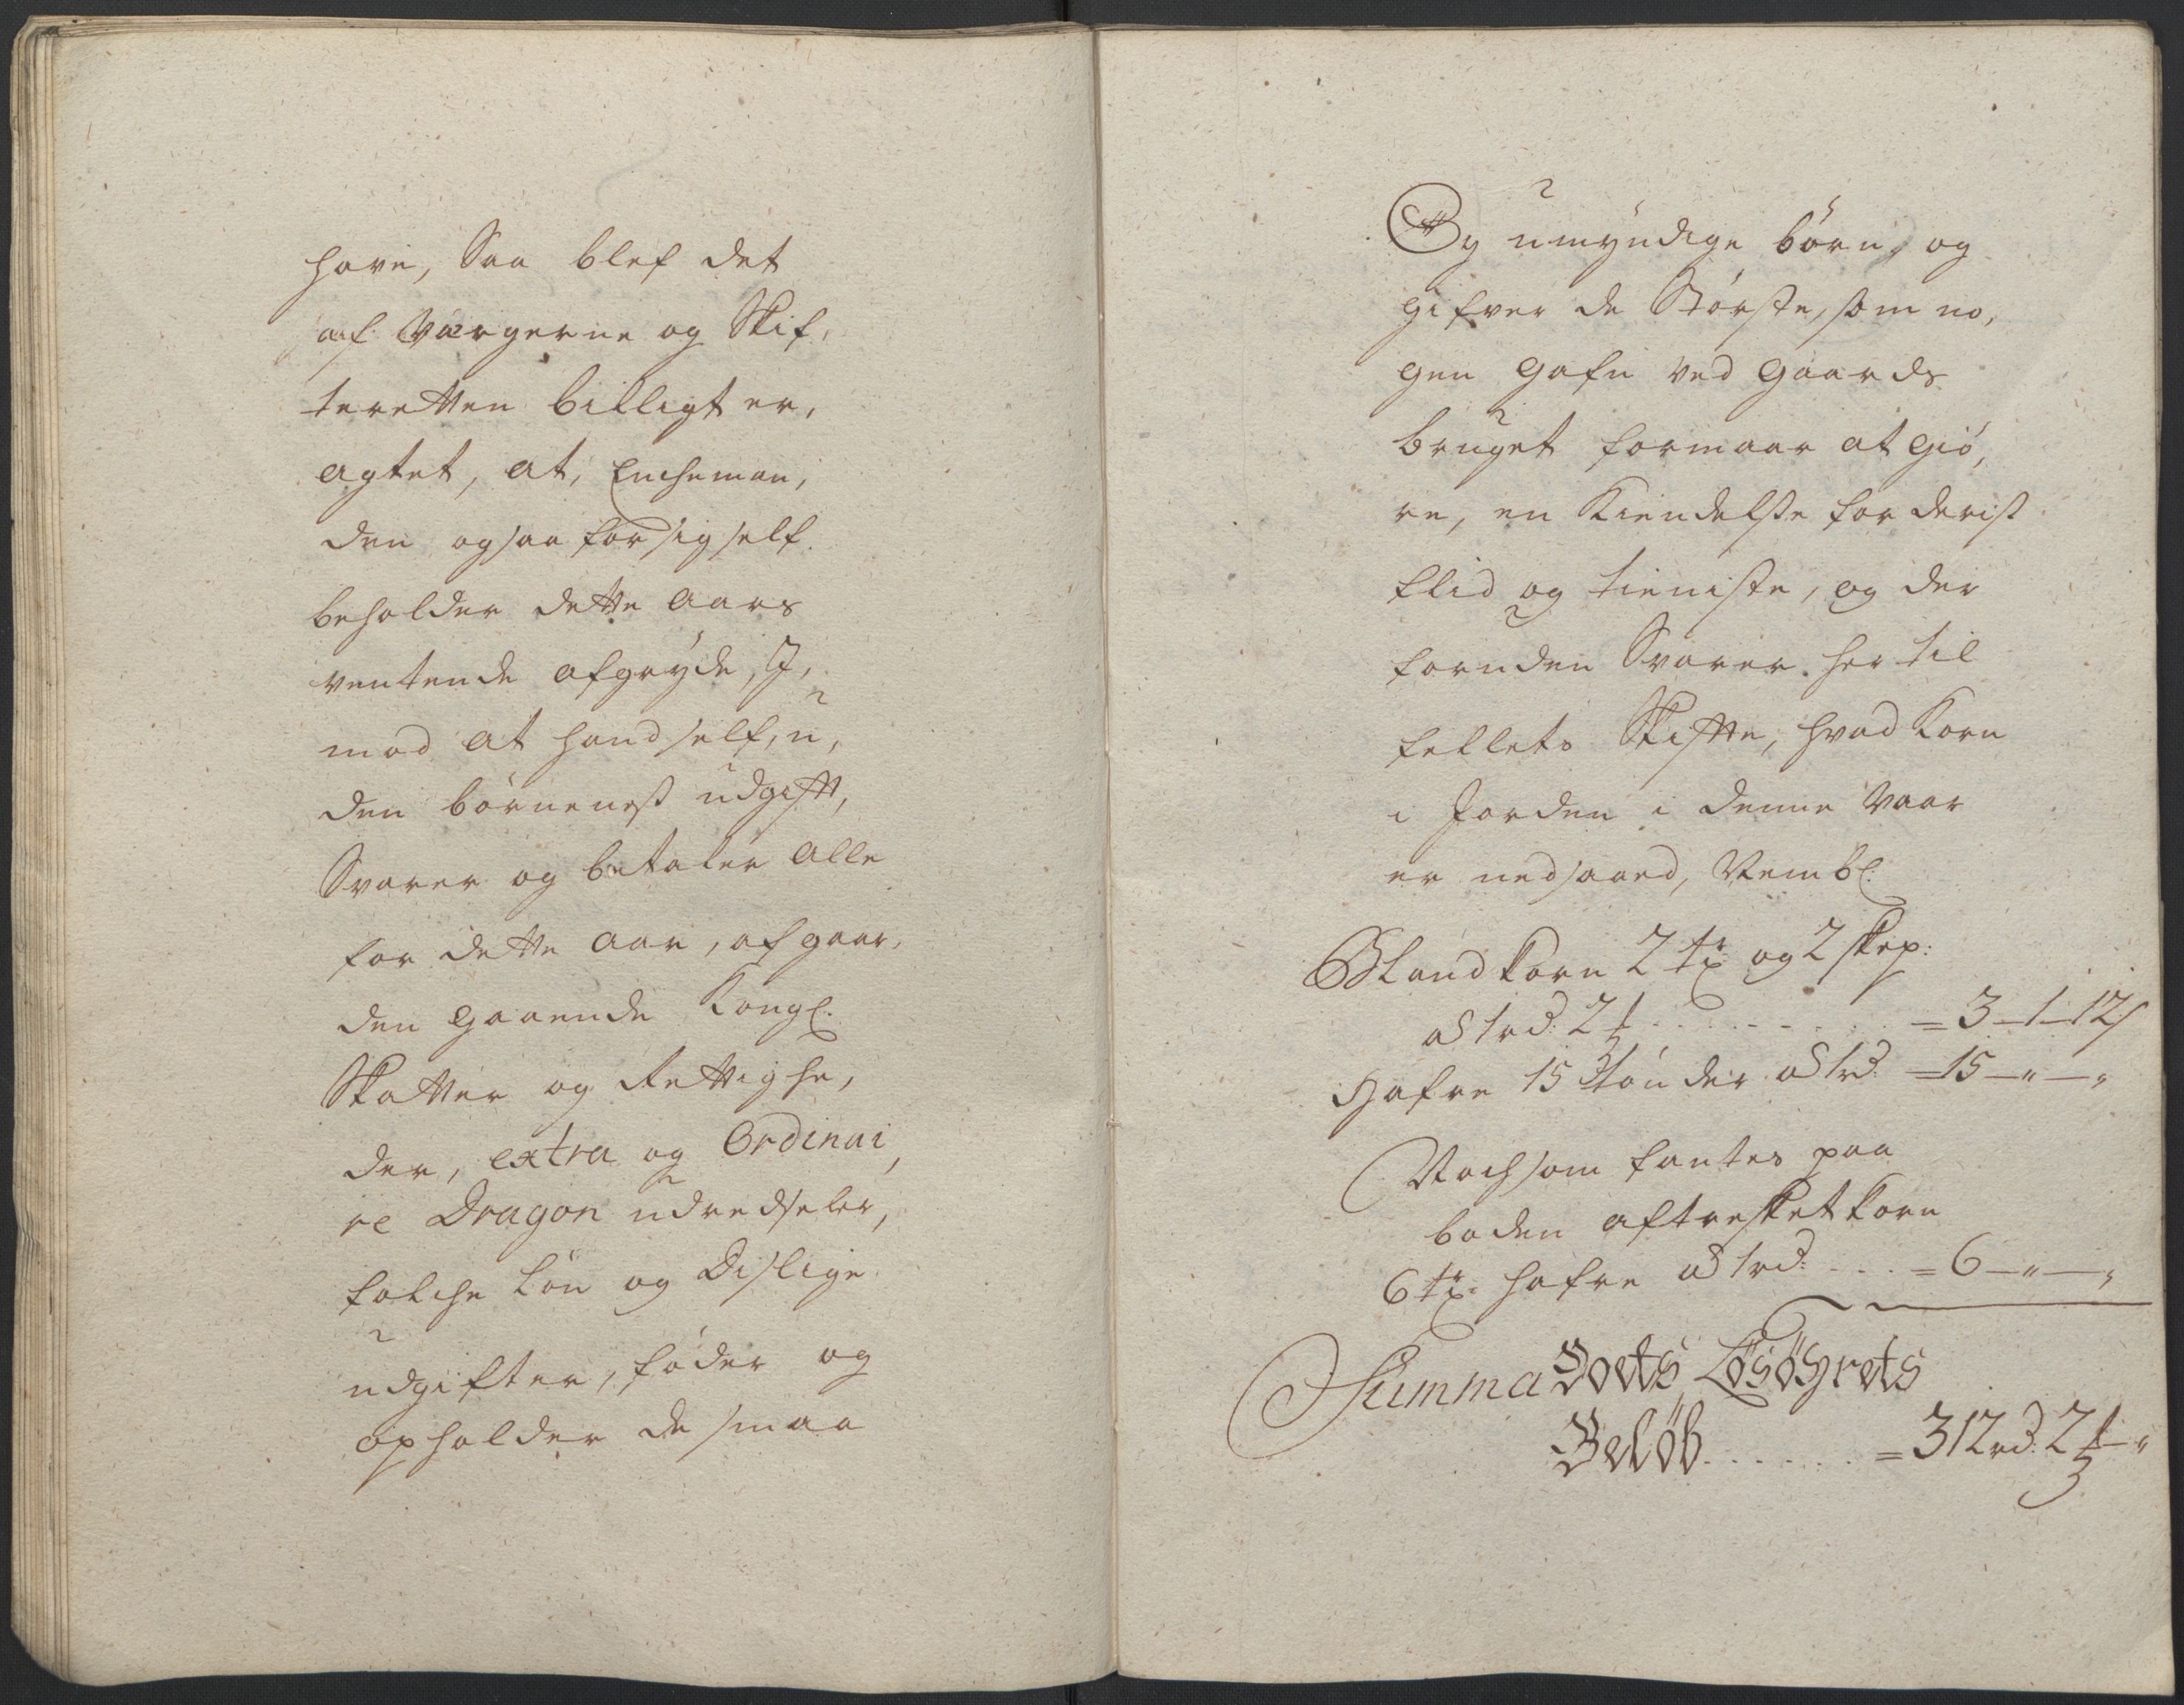 have, Saa blef det
af Værgerne og Skif,
teretten billigt er,
agtet, at, Encheman,
den ogsaa for sig self
beholder dette aars
ventende afgrøde, J,
mod at hand self, u,
den børnenes udgift,
Svarer og betaler alle
for dette aar, af gaar,
den gaaende Kongl.
Skatter og Rettighe,
der, extra og Ordinai,
re Dragon udredseler,
folche løn og Deslige
udgifter, føder og
opholder de smaa
Og umyndige børn, og
gifver de Største, som no,
gen gafn ved gaards
bruget formaar at giø,
re, en Kiendelse for derist
flid og tieniste, og der
foruden Svarer her til
fellets Skifte, hvad Korn
i Jorden i denne Vaar
er nedsaaed, Nembl:
Bland korn 2 tr: og 2 skep:
a 1 rd: 2 ₰ . . . . . . . = 3 – 1 – 12 s
Hafre 15 tønder a 1 rd = 15 – " – "
Noch som fantes paa
boden aftresket korn
6 tr: hafre a 1 rd: . . . = 6 – " – "
Summa Boets Løsøyrets
Beløb . . . . . . = 312 rd. 2 ₰ – "